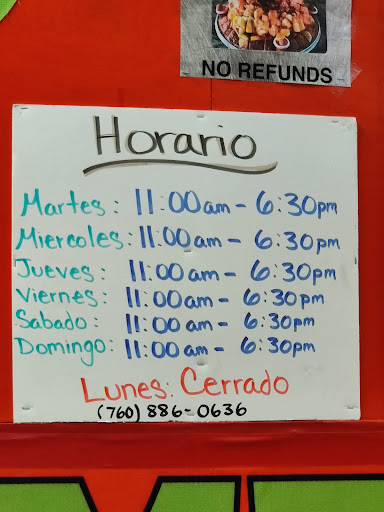 NO REFUNDS
Horario
Martes: 11:00am - 6:30pm
Miercoles: 11:00am - 6:30pm
Jueves: 11:00am - 6:30pm
Viernes: 11:00am - 6:30pm
Sabado: 11:00am - 6:30pm
Domingo: 11:00am - 6:30pm
Lunes: Cerrado
(760) 886-0636